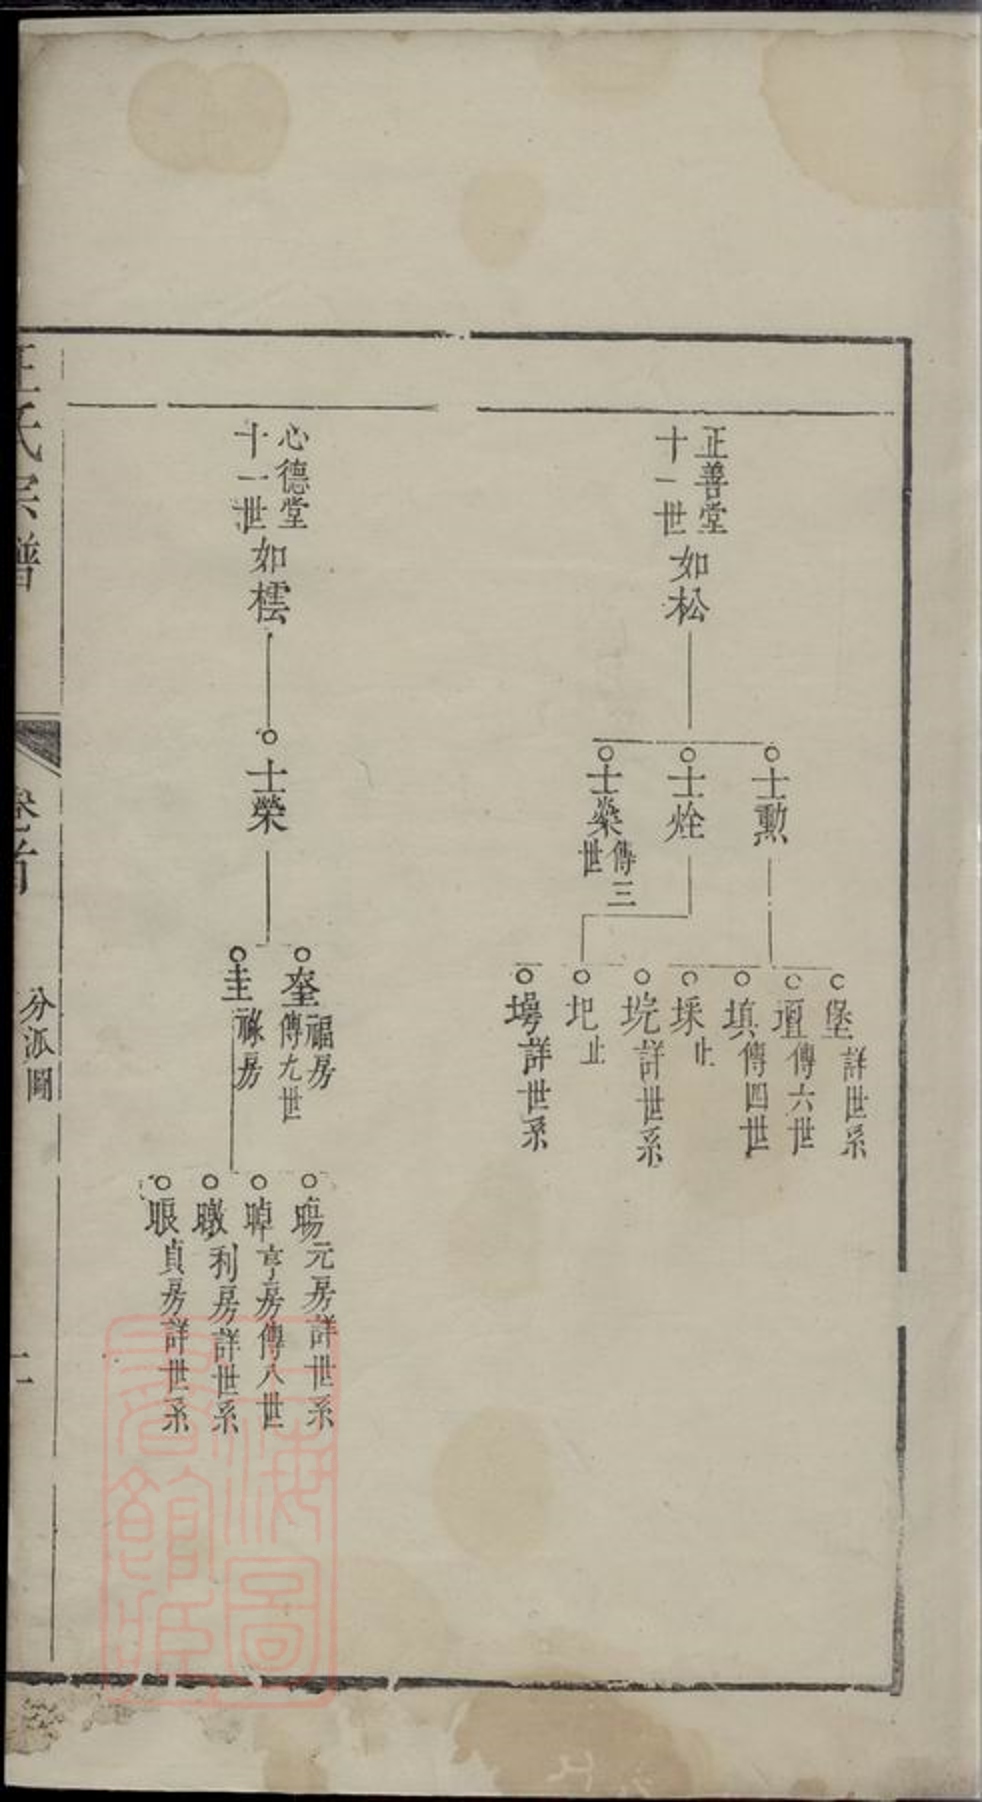 正善堂
十一世
如松
士勳
士烇
士燊
傳三
世
堡
詳世系
壇
傳六世
填
傳四世
埰
止
垸
詳世系
圯
止
塲
詳世系
心德堂
十一世
如橒
士榮
奎
福房
傳九世
圭
祿房
暘
元房詳世系
晫
亨房傳八世
暾
利房詳世系
貞房詳世系
氏宗譜
卷首
分派圖
二
上海圖
書館藏